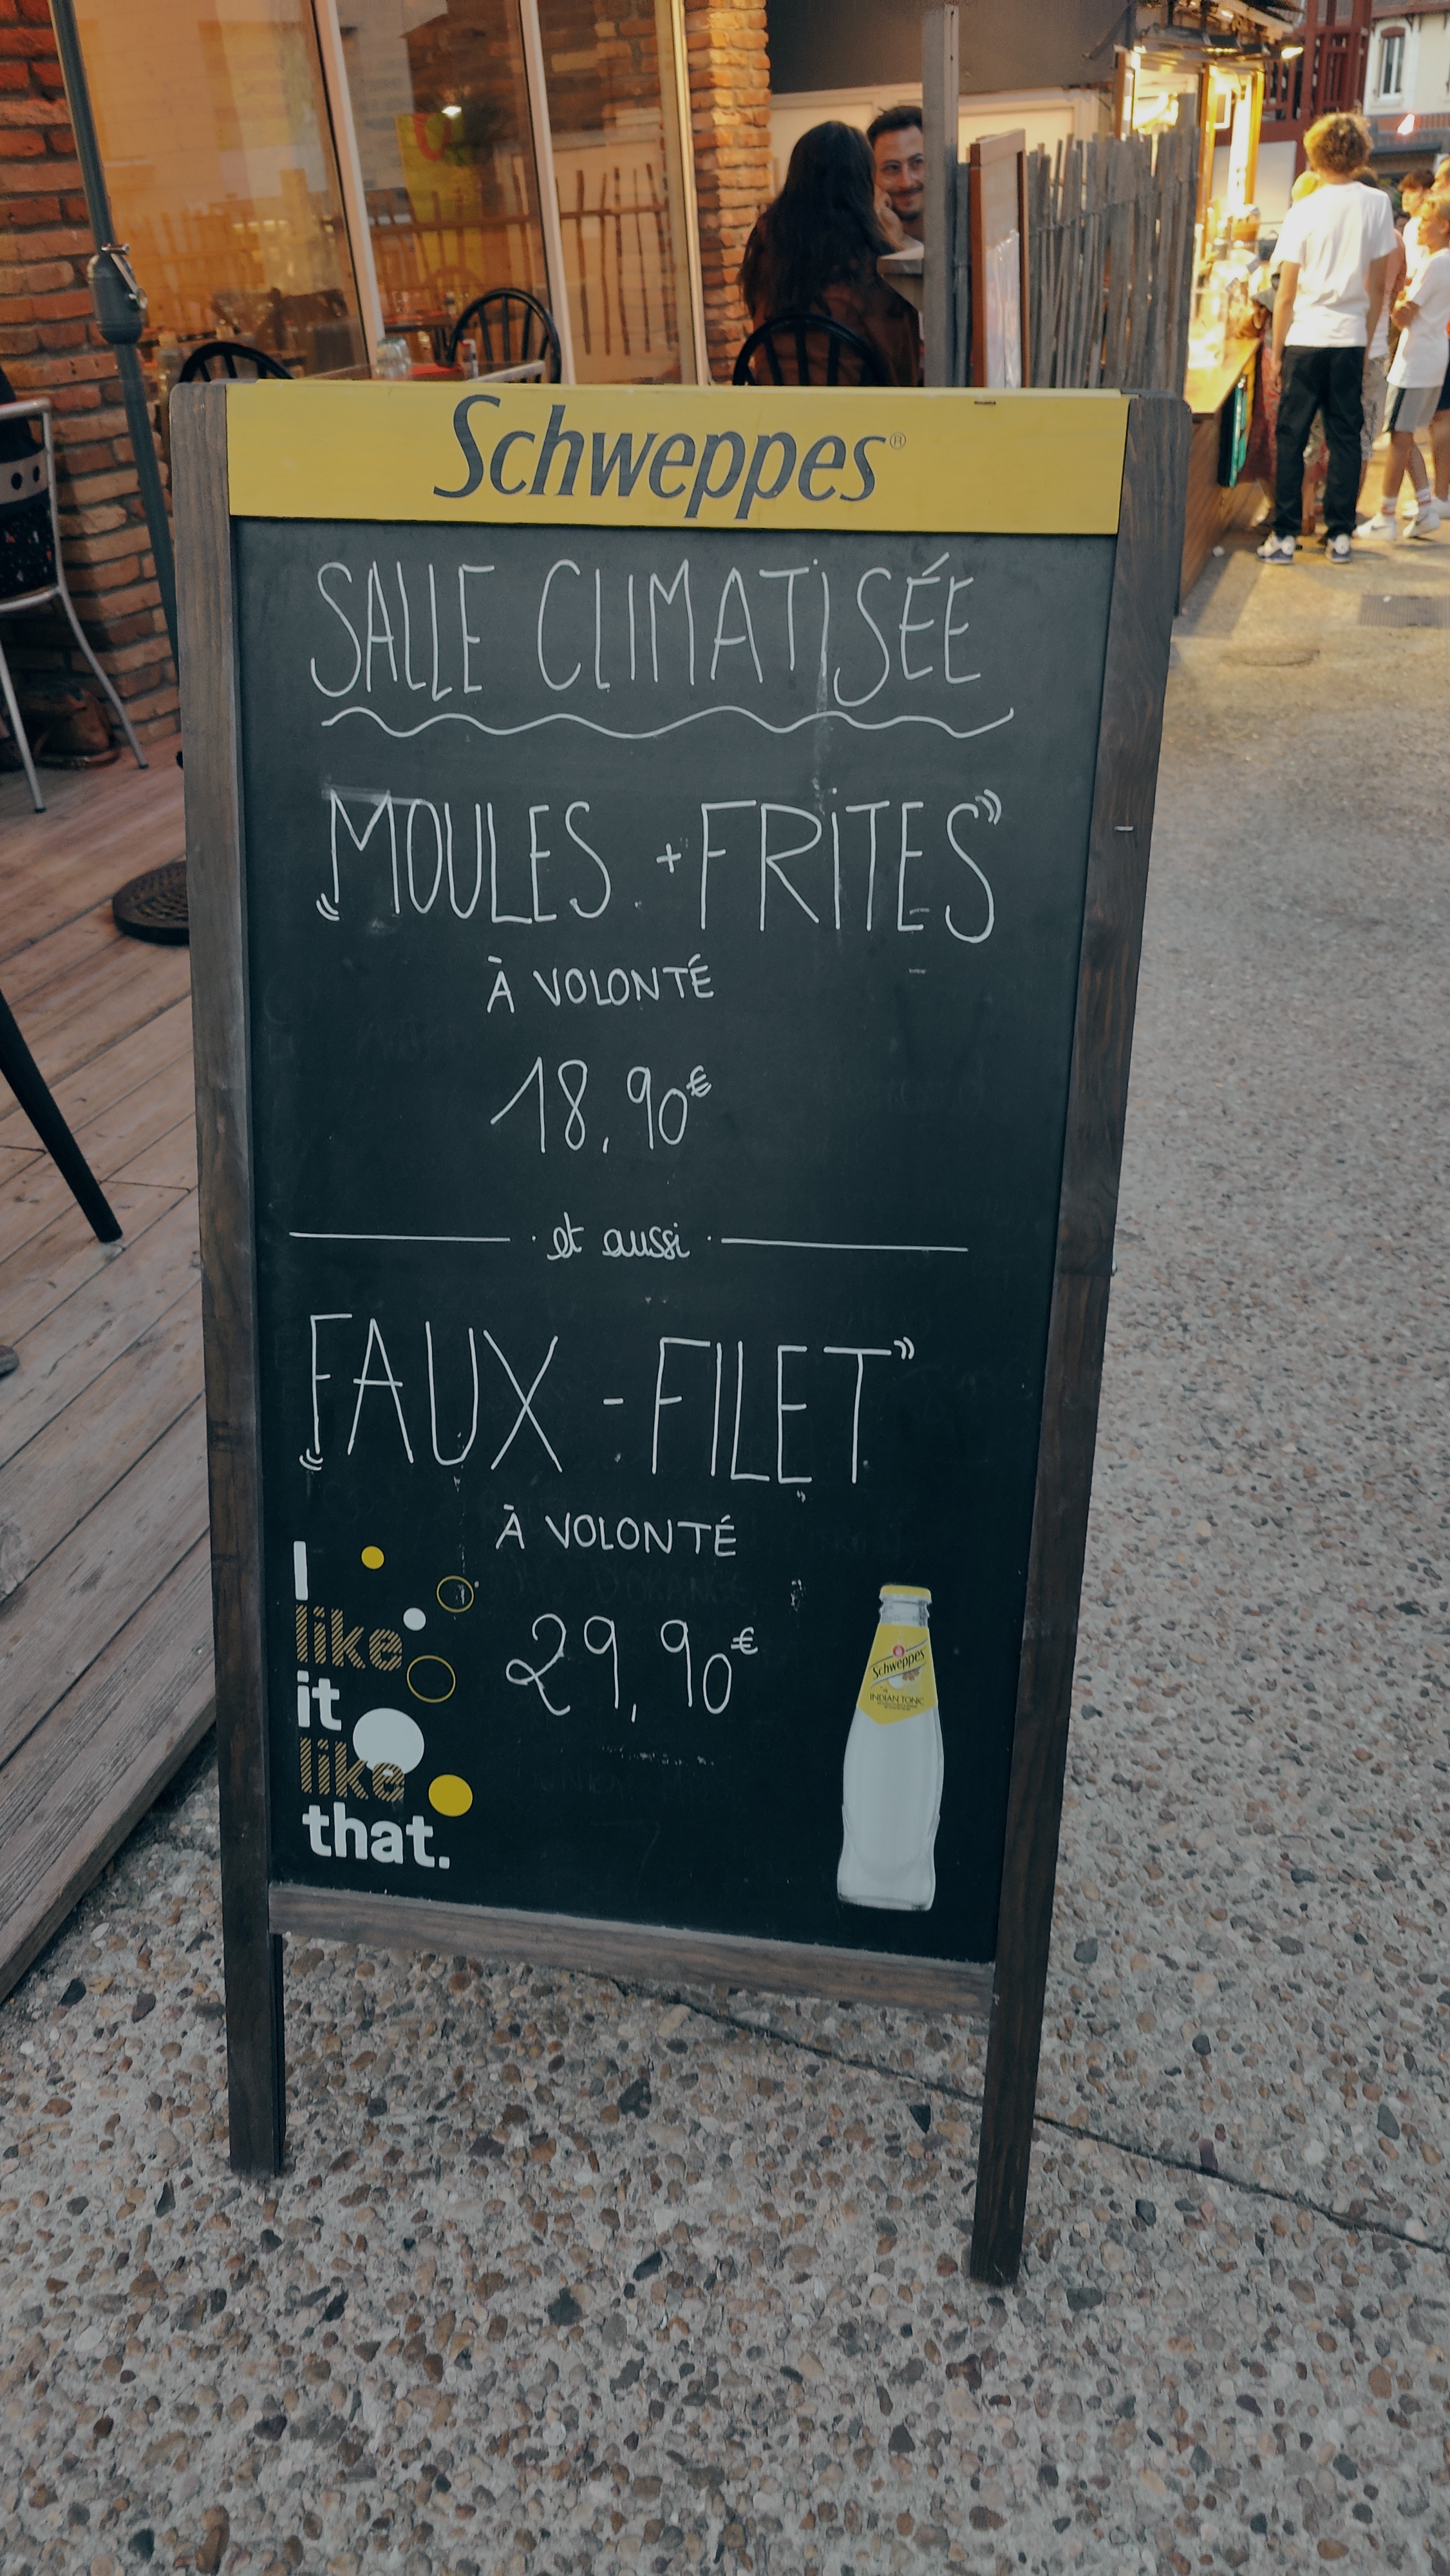 Schweppes®
SALLE CLIMATISÉE
MOULES + FRITES
À VOLONTÉ
18,90€
et aussi
FAUX - FILET
À VOLONTÉ
29,90€
I
like
it
like
that.
Schweppes
INDIAN TONIC